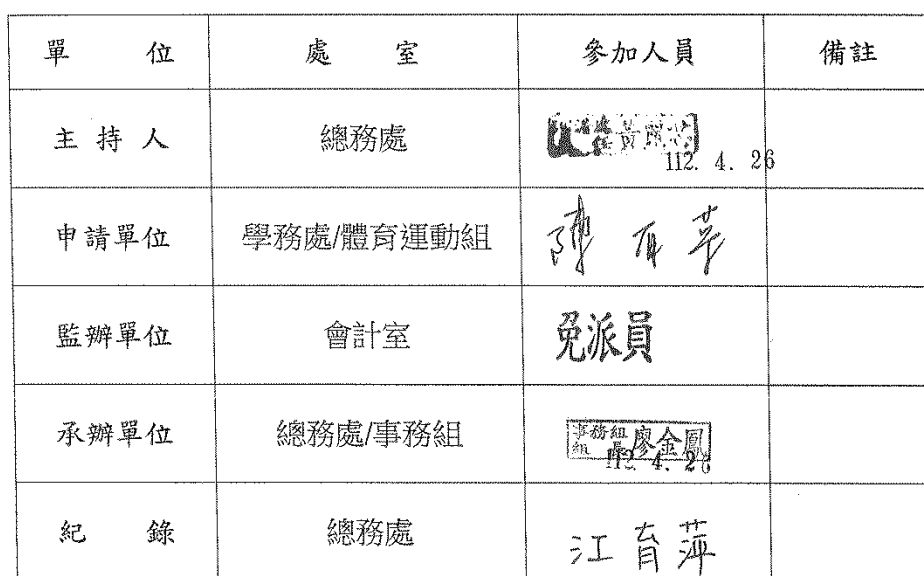 單 位 處 室 參加人員 備註
主 持 人 總務處
112. 4. 26
申請單位 學務處/體育運動組 陳
監辦單位 會計室 免派員
承辦單位 總務處/事務組 事務組 組員 廖金鳳
112. 4. 26
紀 錄 總務處 江育萍